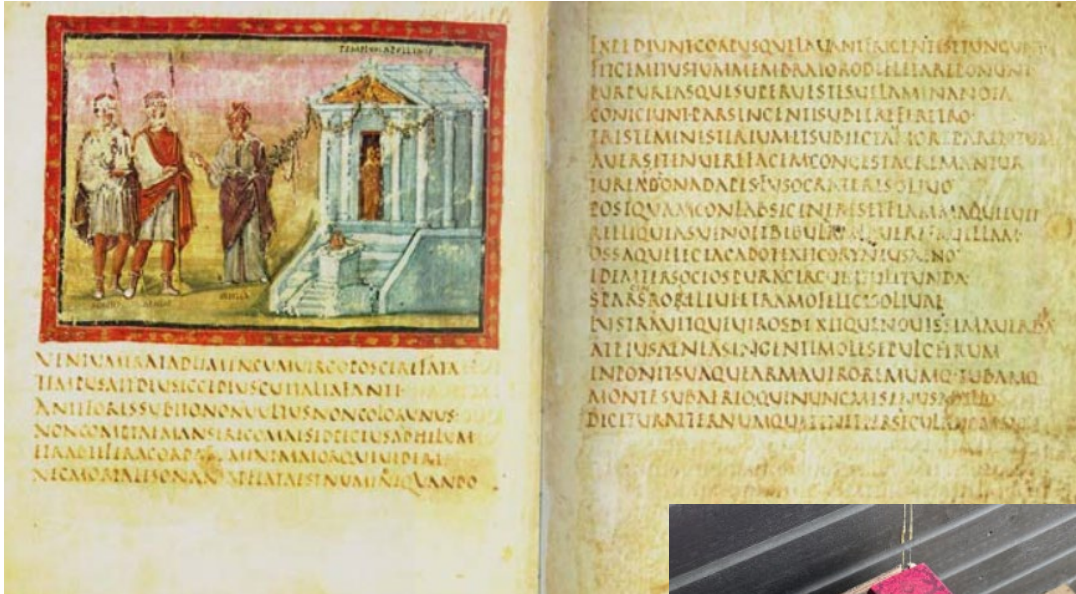 TEMPLUM APOLLINIS
VENTUMERATADLIMENCUMUIRGOPOSCEREFATA
TEMPUSAITDEUSECCEDEUSCUITALIAFANTI
ANTEFORESSUBITONONUULTUSNONCOLORUNUS
NONCOMPTAEMANSERECOMAESEDPECTUSANHELUM
ETRABIEFERACORDA MAIORQUEUIDERI
NECMORTALESONANS ADFLATAESTNUMINEQUANDO
EXPEDIUNTCORPUSQUELAUANTFRIGENTISETUNGUNT
FITGEMITUSTUMMEMBRATORODEFLETAREPONUNT
PURPUREASQUESUPERUESTESUELAMINANOTA
CONICIUNTPARSINGENTISUBIEREFERETRO
TRISTEMINISTERIUMETSUBIECTAMMOREPARENTUM
AUERSITENUEREFACEMCONGESTACREMANTUR
TUREADONADAPESFUSOCRATERESOLIUO
POSTQUAMCONLAPSICINERESETFLAMMAQUIEUIT
RELIQUIASUINOETBIBULAMLAUEREFAUILLAM
OSSAQUELECTACADOTEXITCORYNEUSAENO
IDEMTERSOCIOSPURACIRCUMTULITUNDA
SPARGENSRORELEUIETRAMOFELICISOLIUAE
LUSTRAUITQUEUIROSDIXITQUENOUISSIMAUERBA
ATPIUSAENEASINGENTIMOLESEPULCHRUM
INPONITSUAQUEARMAUIROREMUMQ·TUBAMQ
MONTESUBAERIOQUINUNCMISENUSABILLO
DICITURAETERNUMQUETENETPERSAECULANOMEN